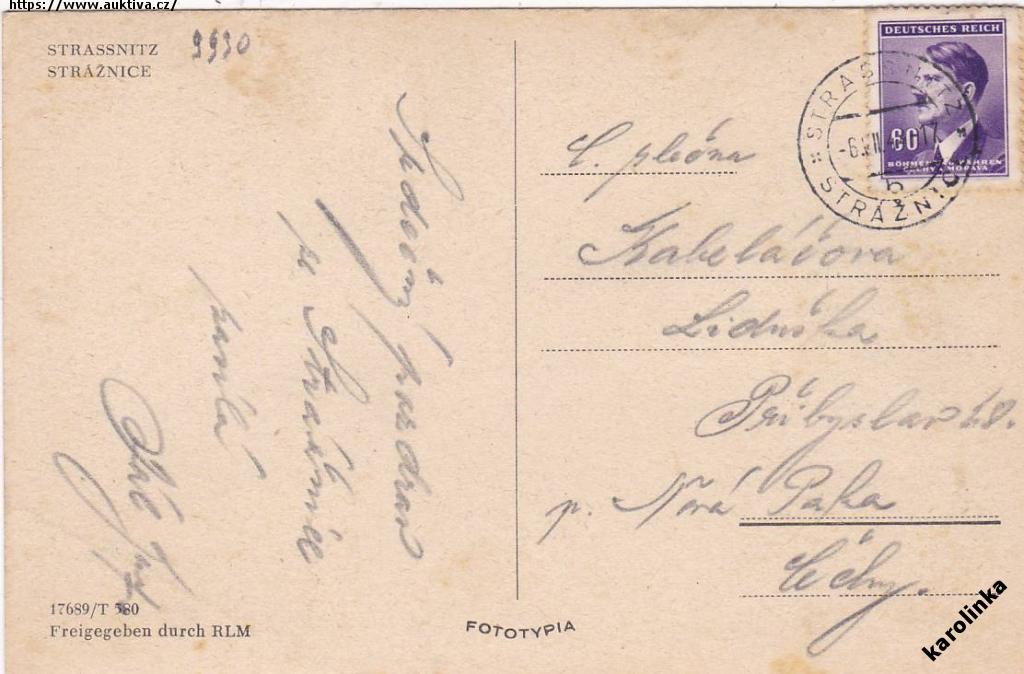 https://www.auktiva.cz/
STRASSNITZ
STRÁŽNICE
9930
Srdečný pozdrav
ze Strážnice
posílá
17689/T 580
Freigegeben durch RLM
FOTOTYPIA
DEUTSCHES REICH
60
BÖHMEN U. MÄHREN
ČECHY A MORAVA
STRASSNITZ
STRÁŽNICE
b
Sl. slečna
Kabeláčova
Liduška
Přibyslav 48.
p. Nová Paka
Čechy.
karolinka